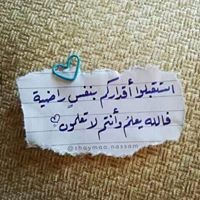 استقبلوا أقداركم بنفسٍ راضية
فالله يعلم وأنتم لا تعلمون
@shaymaa.nassam